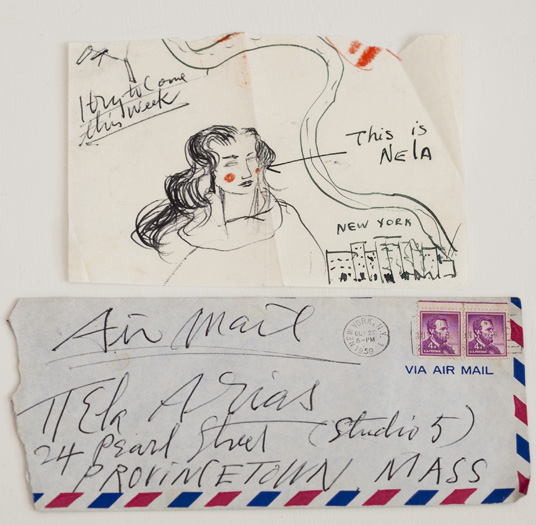 this Week
This is
NElA
NEW YORK
Air Mail
NEW YORK, N.Y.
6-PM
1959
4¢
4¢
VIA AIR MAIL
NElA Arias
24 PEarl Street (Studio 5)
PROVINCETOWN, MASS